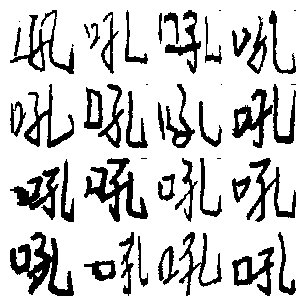 吼吼吼吼
吼吼吼吼
吼吼吼吼
吼吼吼吼